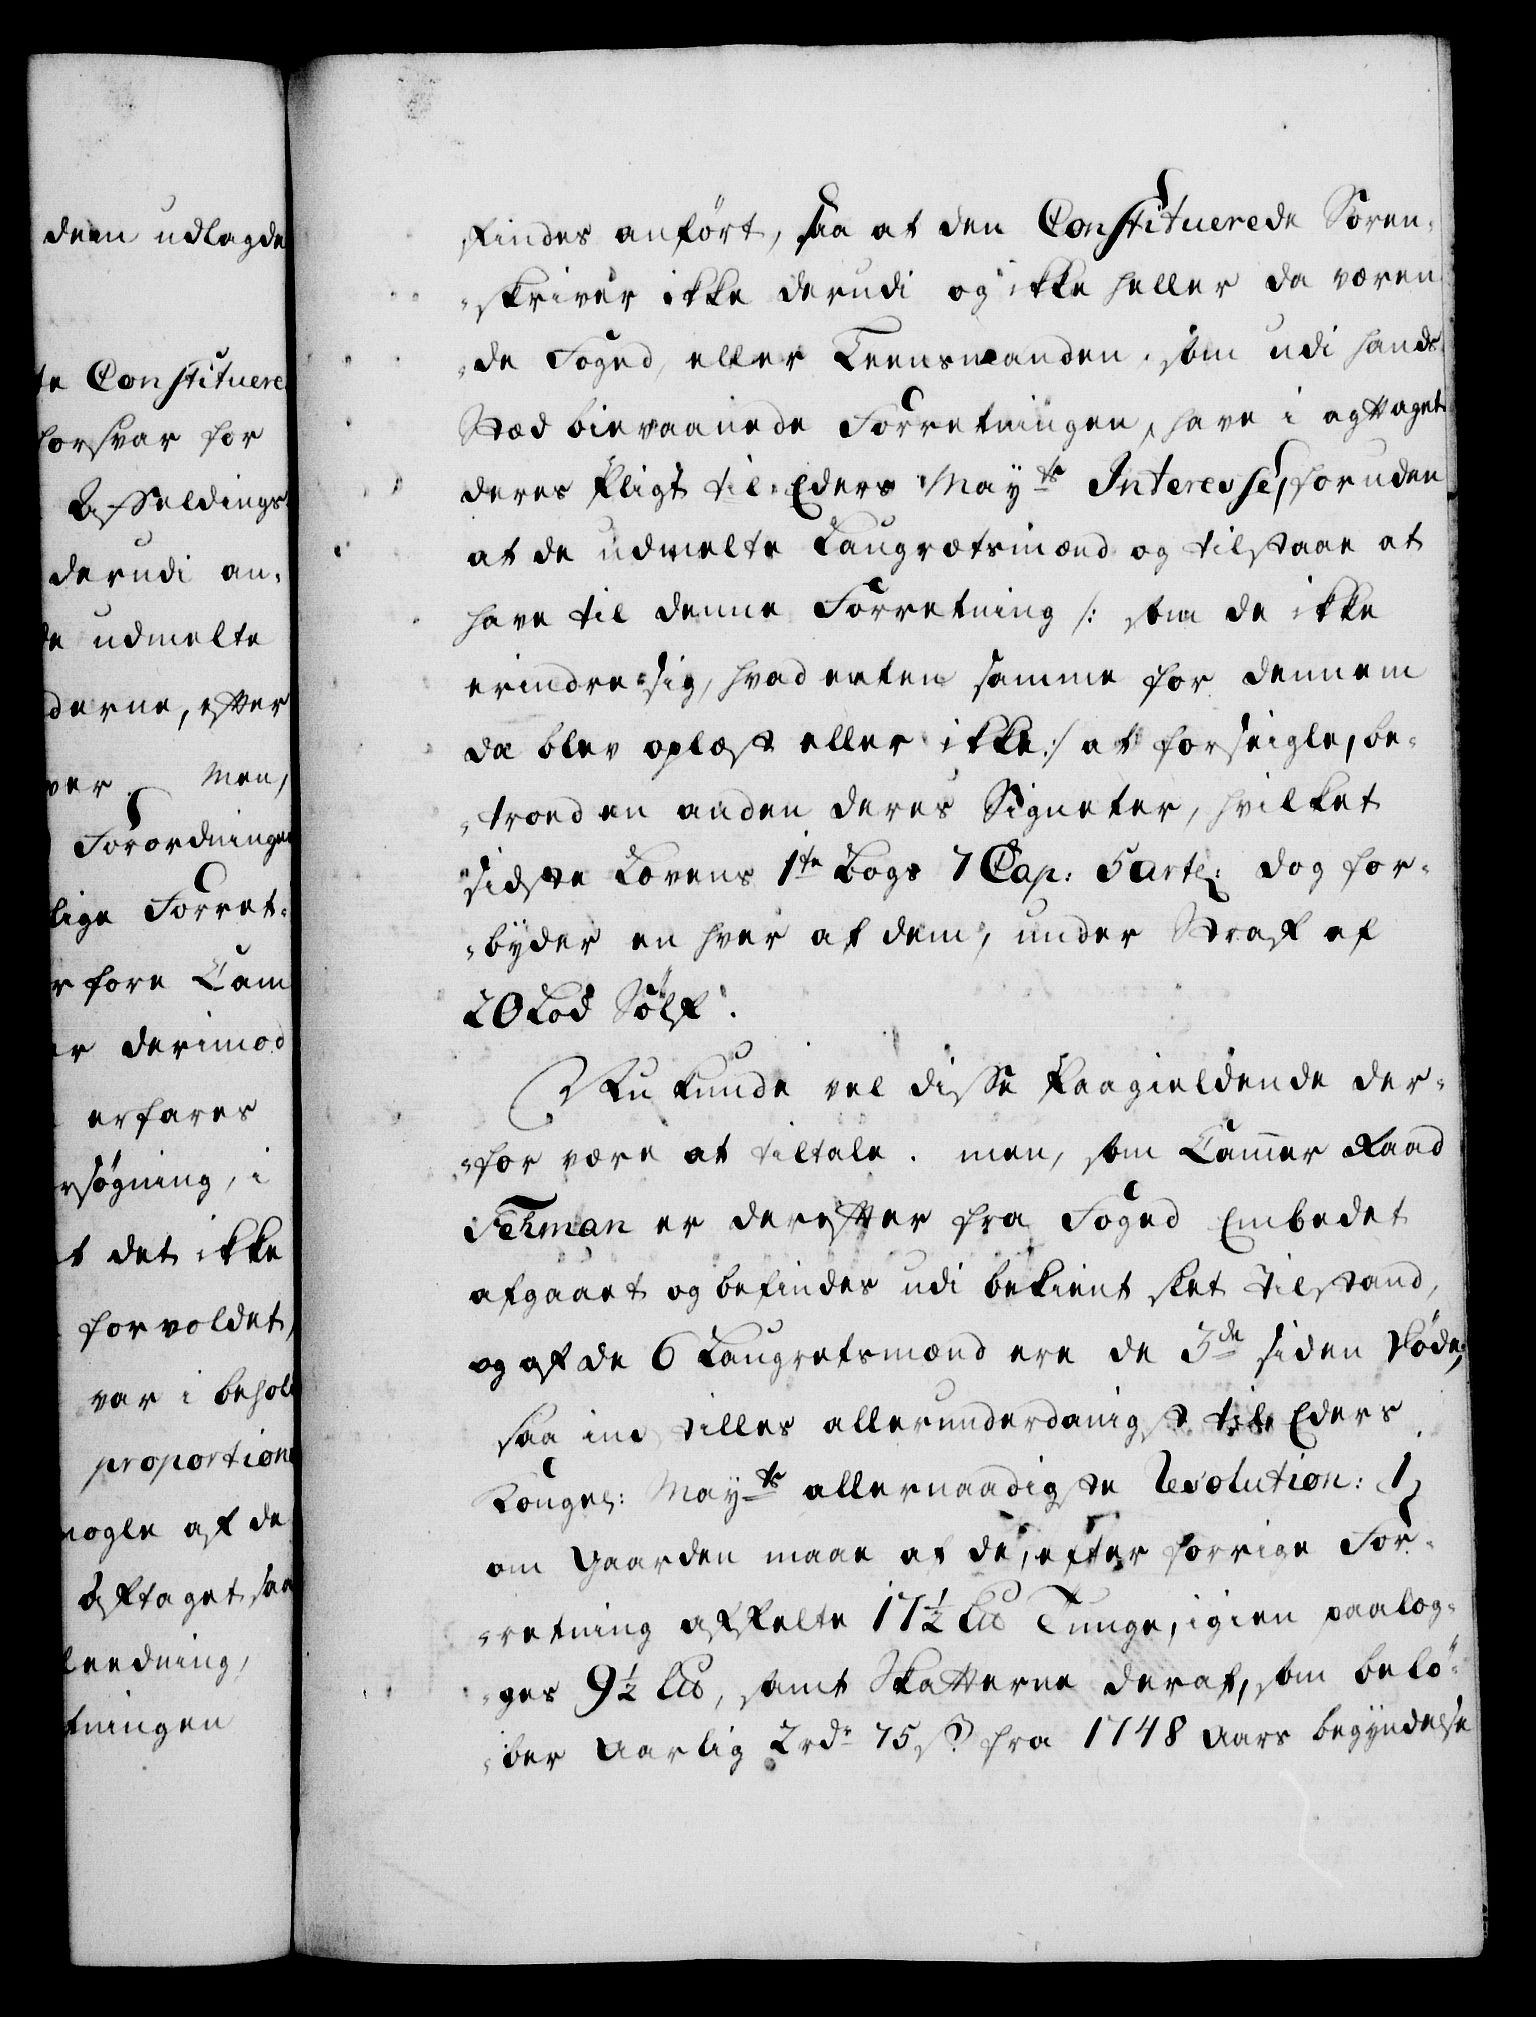 dem udlagde
te Constituere
forsvar for
Affældings
derudi an-
de udmelte
derne, efter
ver. Men,
Forordningen
lige Forret-
r fore Cam
er derimod
erfares
rsøgning, i
t det ikke
forvoldet,
var i behold
proportion
nogle af de
aftaget, saa
leedning,
tningen
findes anført, saa at den Constituerede Soren-
-skriver ikke derudi og ikke heller da væren
-de Foged, eller Leensmanden, som udi hands
Stæd bievaanede Forretningen, have i agttaget
deres Pligt til Eders Mayts Interesse, foruden
at de udmelte Laugrætsmænd og tilstaae at
have til denne Forretning /: som de ikke
erindre sig, hvad enten samme for dennem
da blev oplæst eller ikke :/ at forseigle, be-
-troed en anden deres Signeter, hvilket
sidste Lovens 1te Bogs 7 Cap: 5 Artl: dog for-
-byder en hver af dem, under Straf af
20 Lod Sølf.
Nu kunde vel disse Paagieldende der-
-for være at tiltale. men, som Cammer Raad
Fehman er derefter fra Foged Embedet
afgaaet og befindes udi bekient slet Tilstand,
og af de 6 Laugretsmænd ere de 3de siden døde;
saa indstilles allerunderdanigst til Eders
Kongel: Mayts allernaadigste Resolution: 1,
om Gaarden maae af de, efter forrige For-
-retning affelte 17½ Lis Tunge, igien paalæg-
-ges 9½ Lis, samt Skatterne deraf, som belø-
-ber Aarlig 2 rdr 75 s. fra 1748 Aars begyndelse